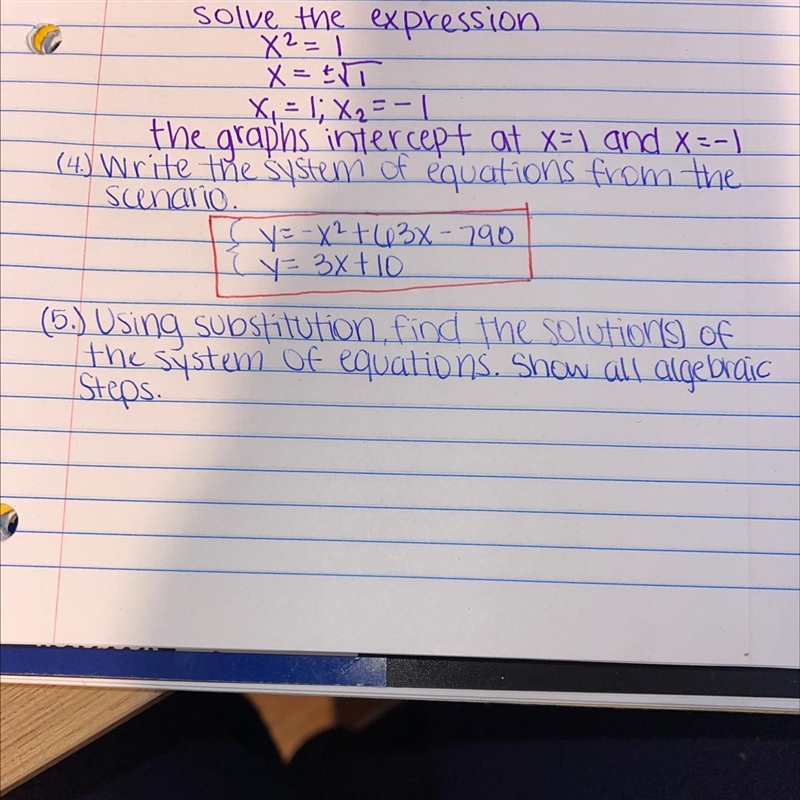 solve the expression
x² = 1
x = ±√1
x₁ = 1; x₂ = -1
the graphs intercept at x=1 and x=-1
(4.) Write the system of equations from the
scenario.
{ y = -x² + 63x - 790
{ y = 3x + 10
(5.) Using substitution, find the solution(s) of
the system of equations. Show all algebraic
steps.